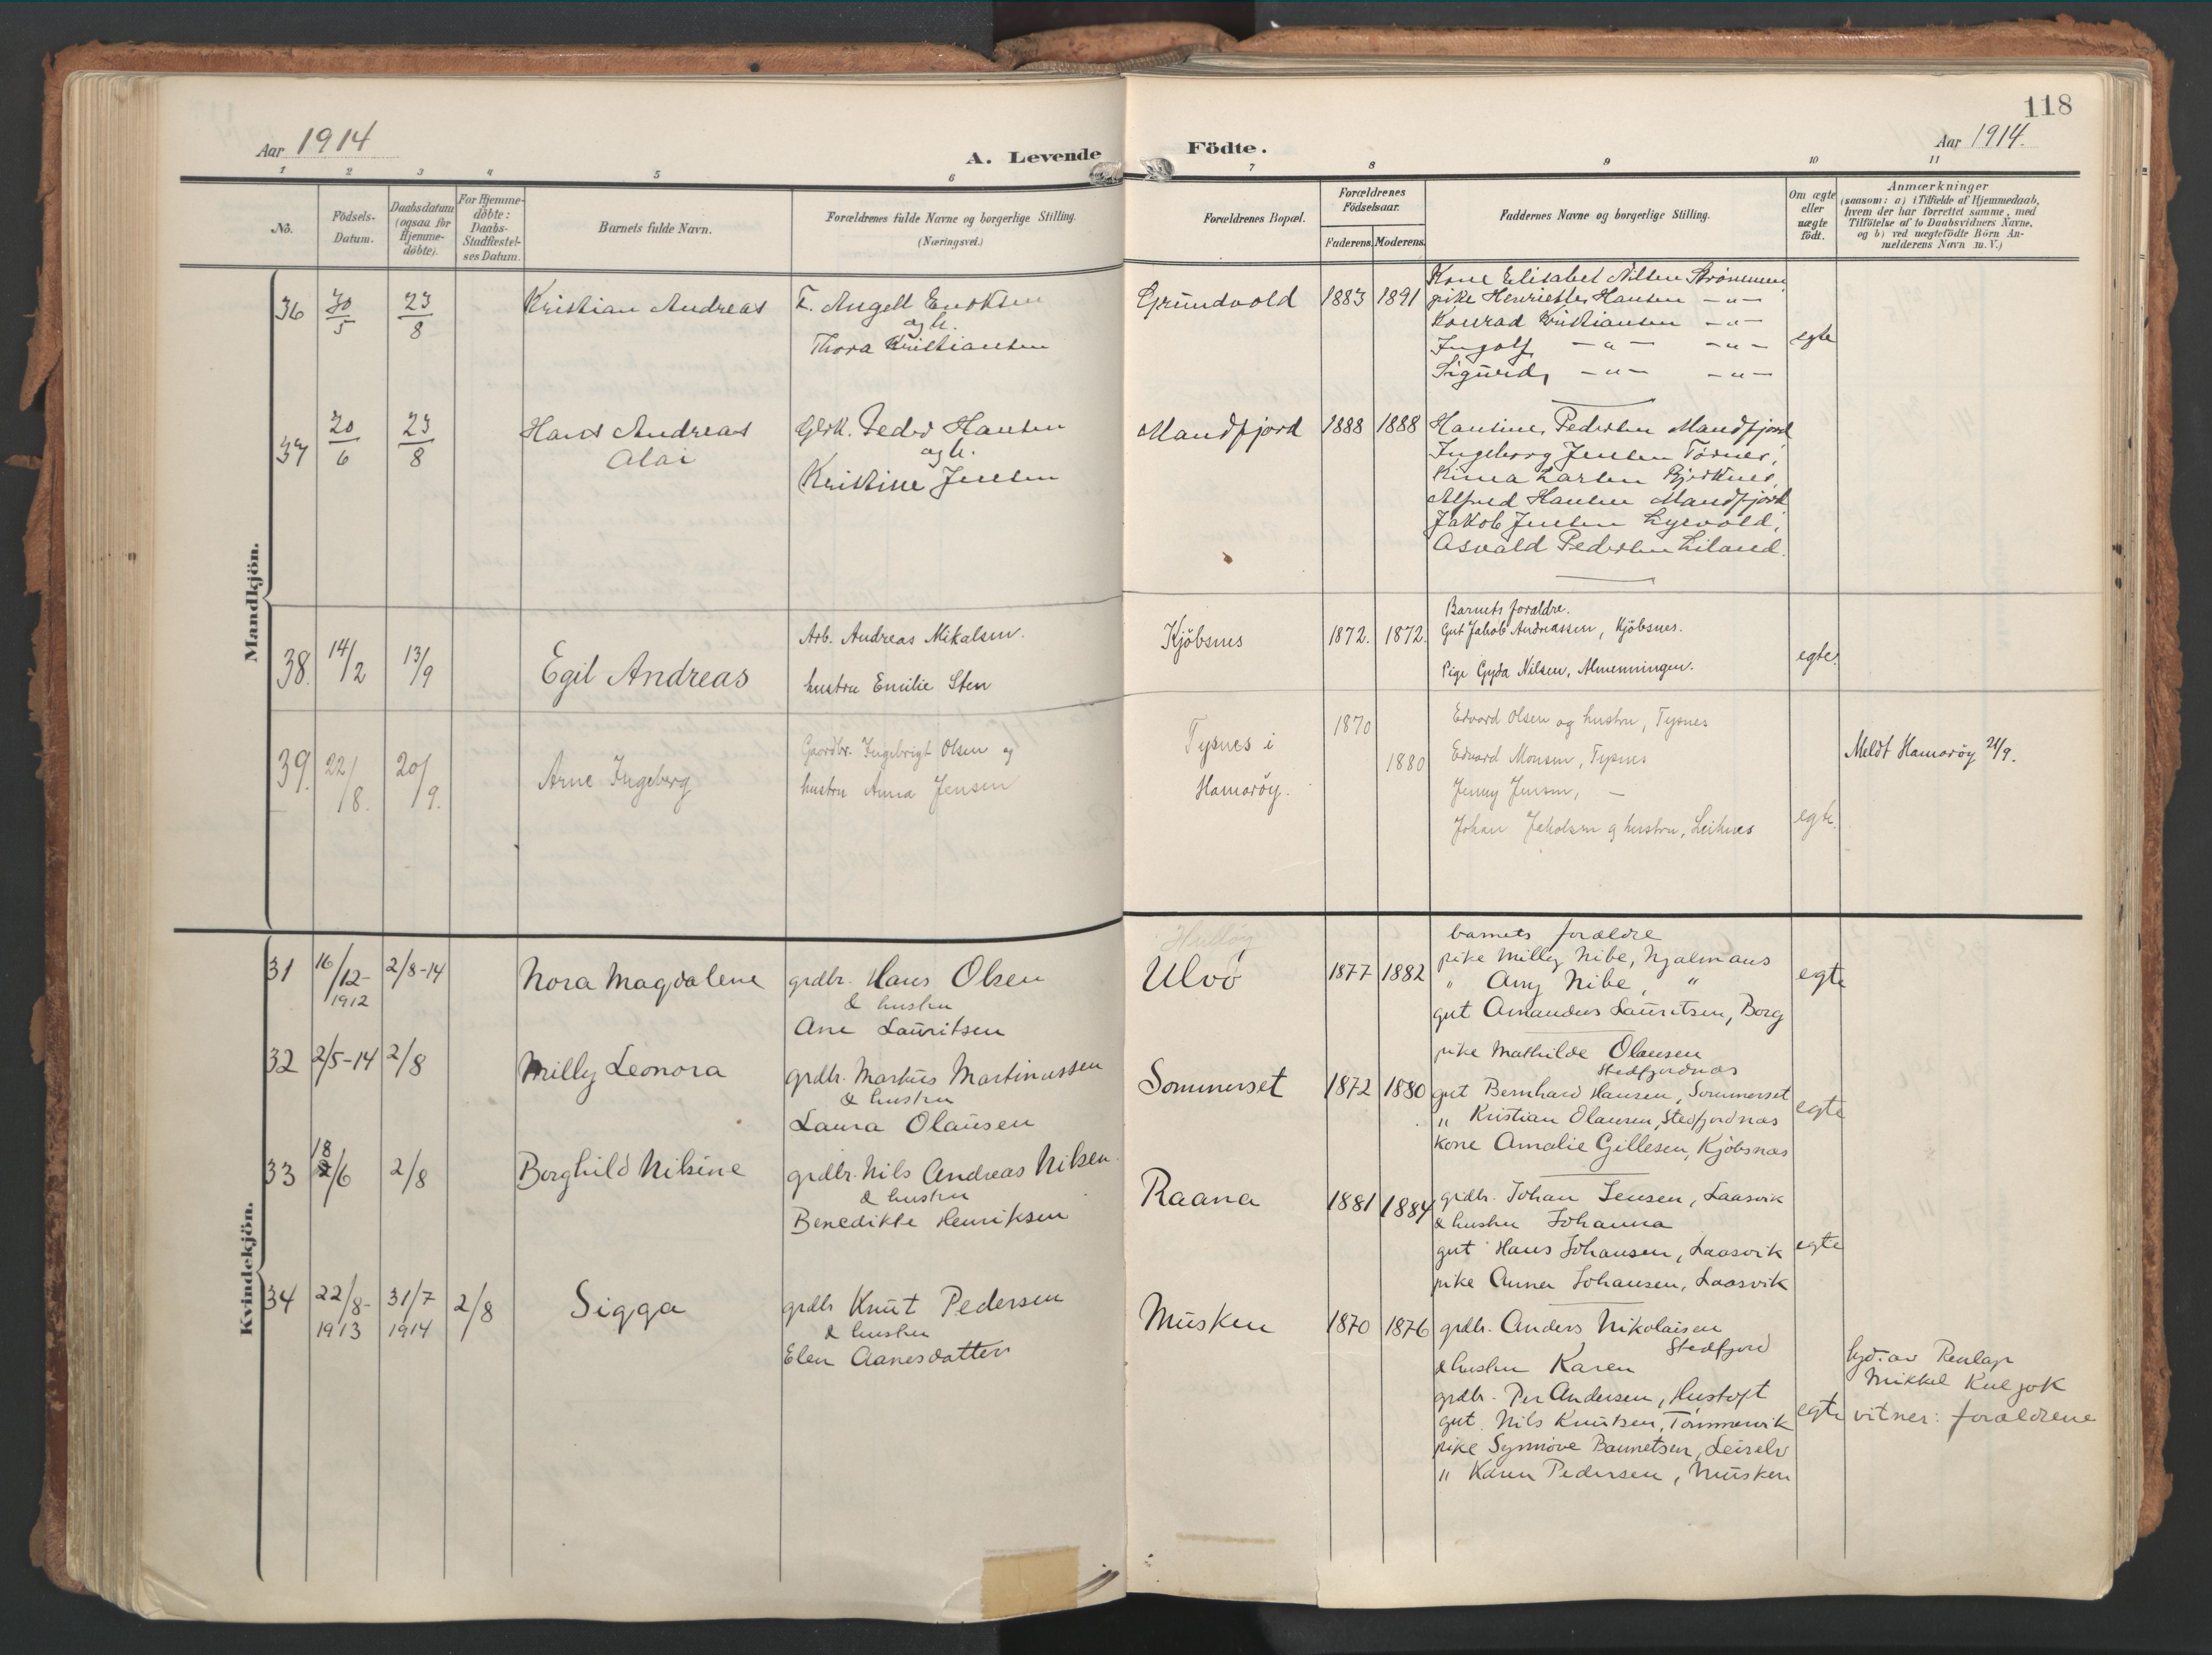 118
Aar 1914
A. Levende Födte.
Aar 1914.
1 2 3 4 5 6 7 8 9 10 11
No.
Födsels-Datum.
Daabsdatum (ogsaa for Hjemme-döbte).
For Hjemme-döbte: Daabs-Stadfæstel-ses Datum.
Barnets fulde Navn.
Forældrenes fulde Navne og borgerlige Stilling.
(Næringsvei.)
Forældrenes Bopæl.
Forældrenes Födselsaar.
Faderens. Moderens.
Faddernes Navne og borgerlige Stilling.
Om ægte eller uægte födt.
Anmærkninger
(saasom: a) i Tilfælde af Hjemmedaab,
hvem der har forrettet samme, med
Tilföielse af to Daabsvidners Navne,
og b) ved uægtefödte Börn An-
melderens Navn m.V.)
Mandkjön.
36 30/5 23/8 Kristian Andreas
F. Angell Enoksen
og h.
Thora Kristiansen
Grundvold 1883 1891
Kone Elisabet Nilsen Strømmen
pike Henriette Hansen — " —
Konrad Kristiansen — " —
Ingolf — " — — " —
Sigurd — " — — " —
egte
37 20/6 23/8 Hans Andreas
Peder Hansen
og h.
Kristine Jensen
Mandfjord 1888 1888
Hansine Pedersen Mandfjord
Ingeborg Jensen
Larsen
Alfred Hansen Mandfjord
Jakob Jensen
Asvald Pedersen Liland.
38. 14/2 13/9 Egil Andreas
Arb. Andreas Mikalsen.
hustru Emilie Sten
Kjöbsnes 1872. 1872.
Barnets foraldre.
Gut Jakob Andreassen, Kjöbsnes.
Pige Gyda Nilsen, Almenningen.
egte.
39. 22/8. 20/9. Arne Ingeberg
Gaardbr. Ingebrigt Olsen og
hustru Anna Jensen
Tysnes i
Hamarøy.
1870 1880
Edvard Olsen og hustru, Tysnes
Edvard Monsen, Tysnes
Jenny Jensen, —
Johan Jakobsen og hustru,
egte.
Meldt Hamarøy 21/9.
Kvindekjön.
31 16/12-1912 2/8-14 Nora Magdalene
grdbr. Hans Olsen
& hustru
Ane Lauritsen
Ulvø 1877 1882
barnets foraldre
pike Milly Nibe, Hjalmans
" Amy Nibe, "
gut Amandus Lauritsen, Borg
egte
32 2/5-14 2/8 Milly Leonora
grdbr. Markus Martinussen
& hustru
Laura Olausen
Sommerset 1872 1880
pike Mathilde Olausen
Stedfjordnas
gut Bernhard Hansen, Sommerset
" Kristian Olausen, Stedfjordnas
kone Amalie Gillesen, Kjøbsnas
egte
33 18/6 2/8 Borghild Nilsine
grdbr. Nils Andreas Nilsen
& hustru
Benedikte Henriksen
Raana 1881 1884
grdbr. Johan Jensen, Laasvik
& hustru Johanna
gut Hans Johansen, Laasvik
pike Anna Johansen, Laasvik
egte
34 22/8-1913 31/7 1914 2/8 Sigga
grdbr Knut Pedersen
& hustru
Elen Aanesdatter
Musken 1870 1876
grdbr. Anders Nikolaisen
Stedfjord
& hustru Karen
grdbr. Per Andersen, Hustoft
gut Nils Knutsen, Tømmervik
pike Synnøve Baunetsen, Leirelv
" Karen Pedersen, Musken
egte
hjd. av Renlap
Mikkel Kuljok
vitner: foraldrene